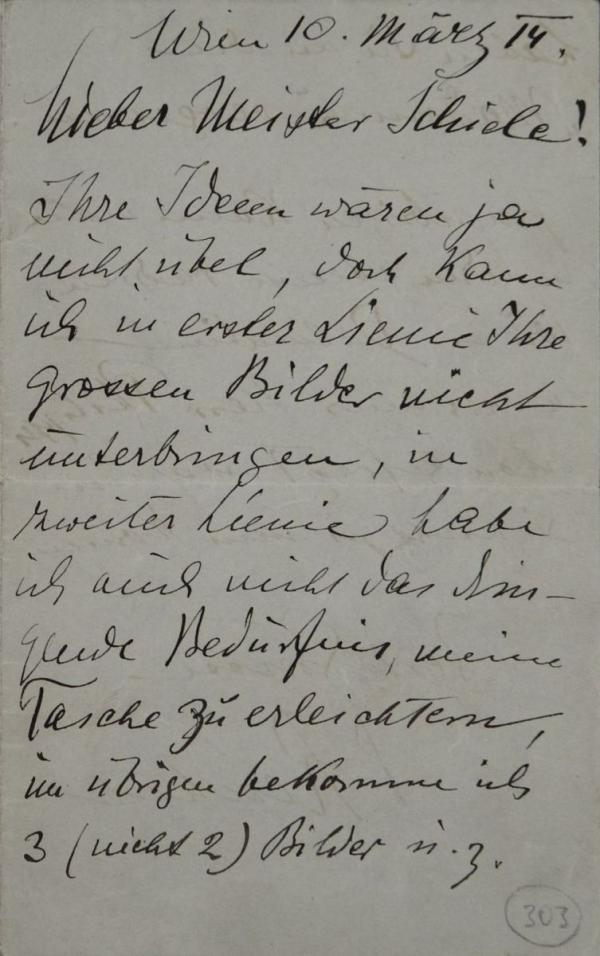 Wien 10. März 14.
Lieber Meister Schiele!
Ihre Ideeen wären ja
nicht übel, doch kann
ich in erster Lienie Ihre
grossen Bilder nicht
unterbringen, in
zweiter Lienie habe
ich auch nicht das drin-
gende Bedürfnis, meine
Tasche zu erleichtern,
im übrigen bekomme ich
3 (nicht 2) Bilder u. z.
303